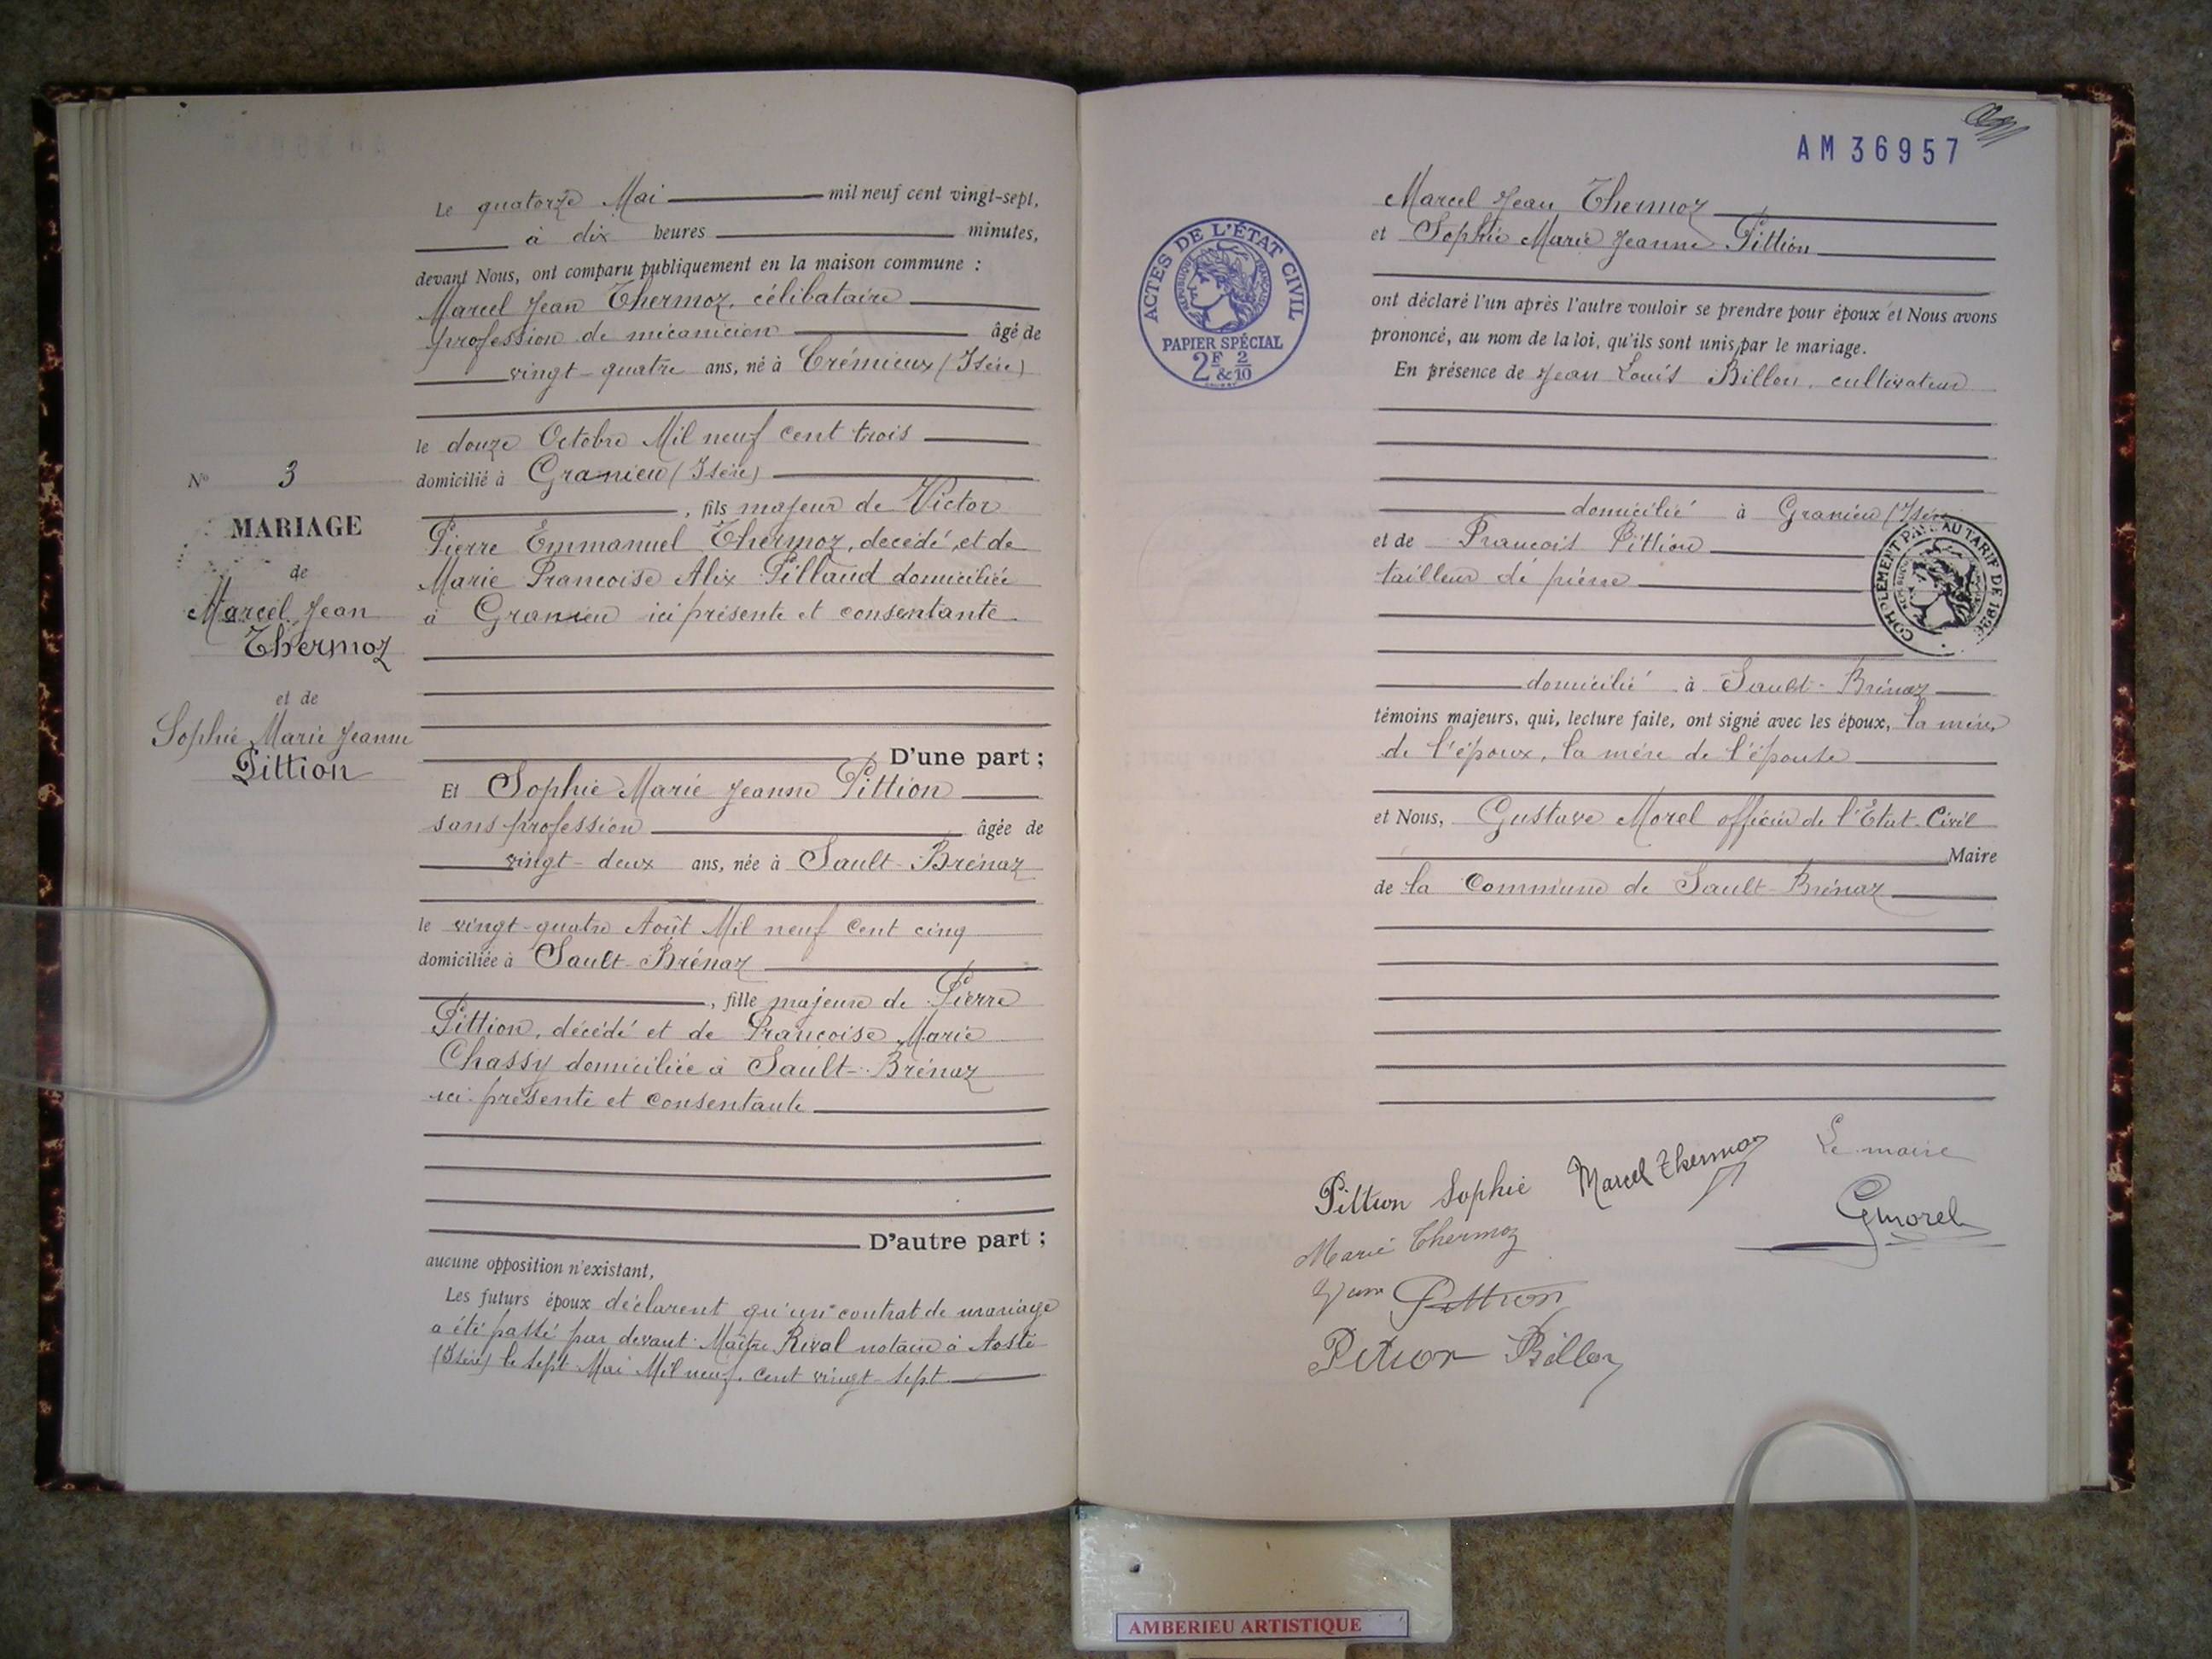 Le quatorze Mai mil neuf cent vingt-sept,
à dix heures minutes,
devant Nous, ont comparu publiquement en la maison commune :
Marcel Jean Thermoz, célibataire
profession de mécanicien âgé de
vingt-quatre ans, né à Crémieux (Isère)
le douze Octobre Mil neuf cent trois
domicilié à Granieu (Isère)
, fils majeur de Victor
Pierre Emmanuel Thermoz, décédé, et de
Marie Francoise Alix Pillaud domiciliée
à Granieu ici présente et consentante
D'une part ;
Et Sophie Marie Jeanne Pittion
sans profession âgée de
vingt-deux ans, née à Sault-Brénaz
le vingt-quatre Août Mil neuf Cent cinq
domiciliée à Sault-Brénaz
, fille majeure de Pierre
Pittion, décédé et de Francoise Marie
Chassy domiciliée à Sault-Brénaz
ici présente et consentante
D'autre part ;
aucune opposition n'existant,
Les futurs époux déclarent qu'un contrat de mariage
a été passé par devant Maître Rival notaire à Aoste
(Isère) le sept Mai Mil neuf cent vingt-sept
N° 3
MARIAGE
de
Marcel Jean
Thermoz
et de
Sophie Marie Jeanne
Pittion
AM 36957
ACTES DE L'ÉTAT CIVIL
RÉPUBLIQUE FRANÇAISE
PAPIER SPÉCIAL
2F & 2/10
Marcel Jean Thermoz
et Sophie Marie Jeanne Pittion
ont déclaré l'un après l'autre vouloir se prendre pour époux et Nous avons
prononcé, au nom de la loi, qu'ils sont unis par le mariage.
En présence de Jean Louis Billon, cultivateur
domicilié à Granieu (Isère
et de Francois Pittion
tailleur de pierre
COMPLÉMENT PAYÉ AU TARIF DE 1926
domicilié à Sault-Brénaz
témoins majeurs, qui, lecture faite, ont signé avec les époux, la mère
de l'époux, la mère de l'épouse
et Nous, Gustave Morel officier de l'Etat-Civil
Maire
de la Commune de Sault-Brénaz
Pittion Sophie Marcel Thermoz Le maire
Marie Thermoz GMorel
Pittion
Pittion Billon
AMBERIEU ARTISTIQUE